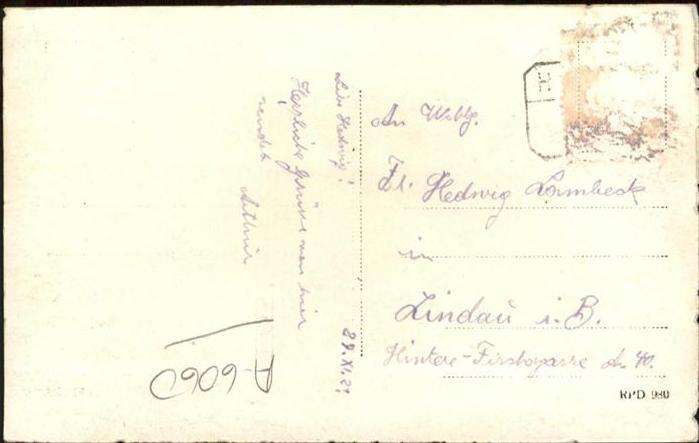 Liebe Hedwig!
Herzliche Grüsse von hier
sendet
Arthur
29.XI.29
A-6060
An Wohlg.
Frl. Hedwig Lambeck
in
Lindau i. B.
Hintere-Fischergasse
RPD 980